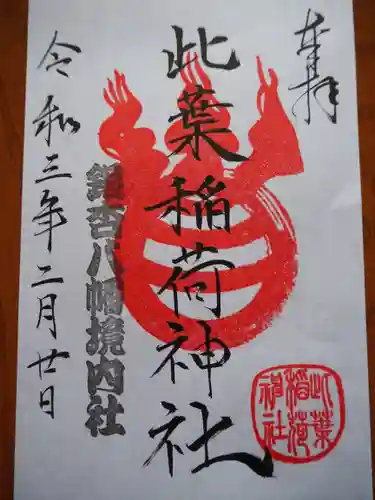 奉拝
此葉稲荷神社
銀杏八幡境内社
令和三年二月廿日
此葉
稲荷
神社